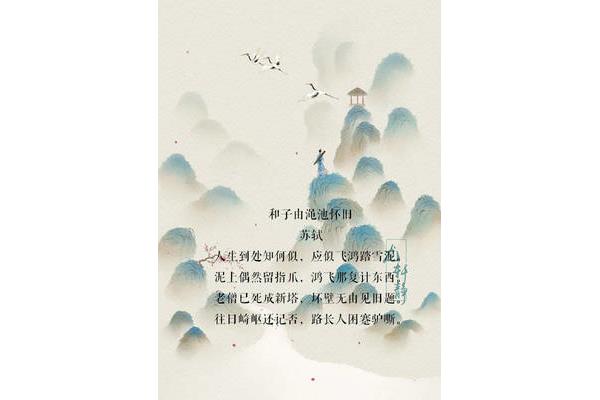 和子由渑池怀旧
苏轼
人生到处知何似，应似飞鸿踏雪泥。
泥上偶然留指爪，鸿飞那复计东西。
老僧已死成新塔，坏壁无由见旧题。
往日崎岖还记否，路长人困蹇驴嘶。